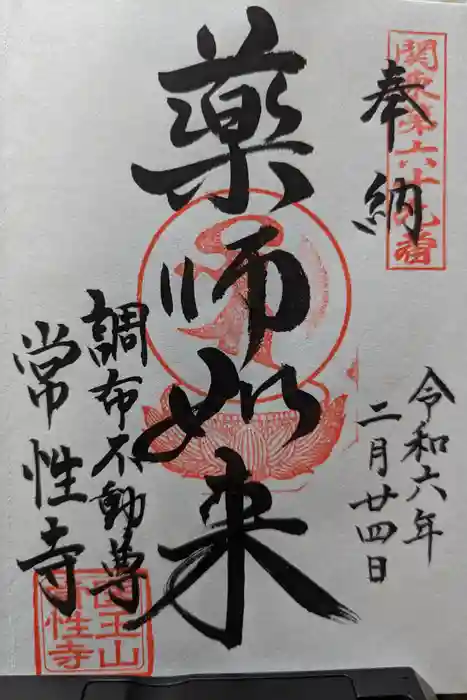 奉納
関東第六十九番
令和六年
二月廿四日
薬師如来
調布不動尊
常性寺
医王山
常性寺